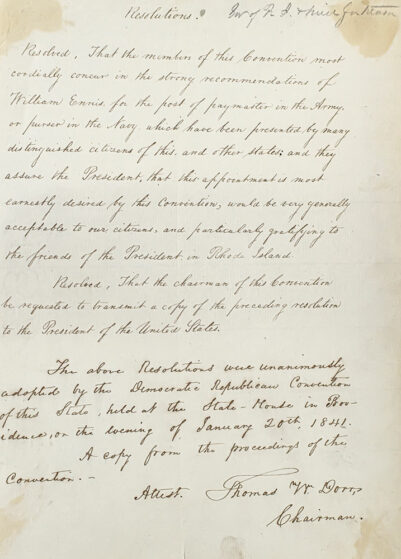 Resolutions. Gov of R. I.
Resolved, That the members of this Convention most
cordially concur in the strong recommendations of
William Ennis, for the post of paymaster in the Army,
or purser in the Navy, which have been presented by many
distinguished citizens of this, and other states; and they
assure the President, that this appointment is most
earnestly desired by this Convention, would be very generally
acceptable to our citizens, and particularly gratifying to
the friends of the President, in Rhode Island.
Resolved, That the chairman of this Convention
be requested to transmit a copy of the preceding resolution
to the President of the United States.
The above Resolutions were unanimously
adopted by the Democratic Republican Convention
of this State, held at the State-House in Prov-
idence, on the evening of January 20th, 1841.
A copy from the proceedings of the
Convention. -
Attest. Thomas W. Dorr,
Chairman.